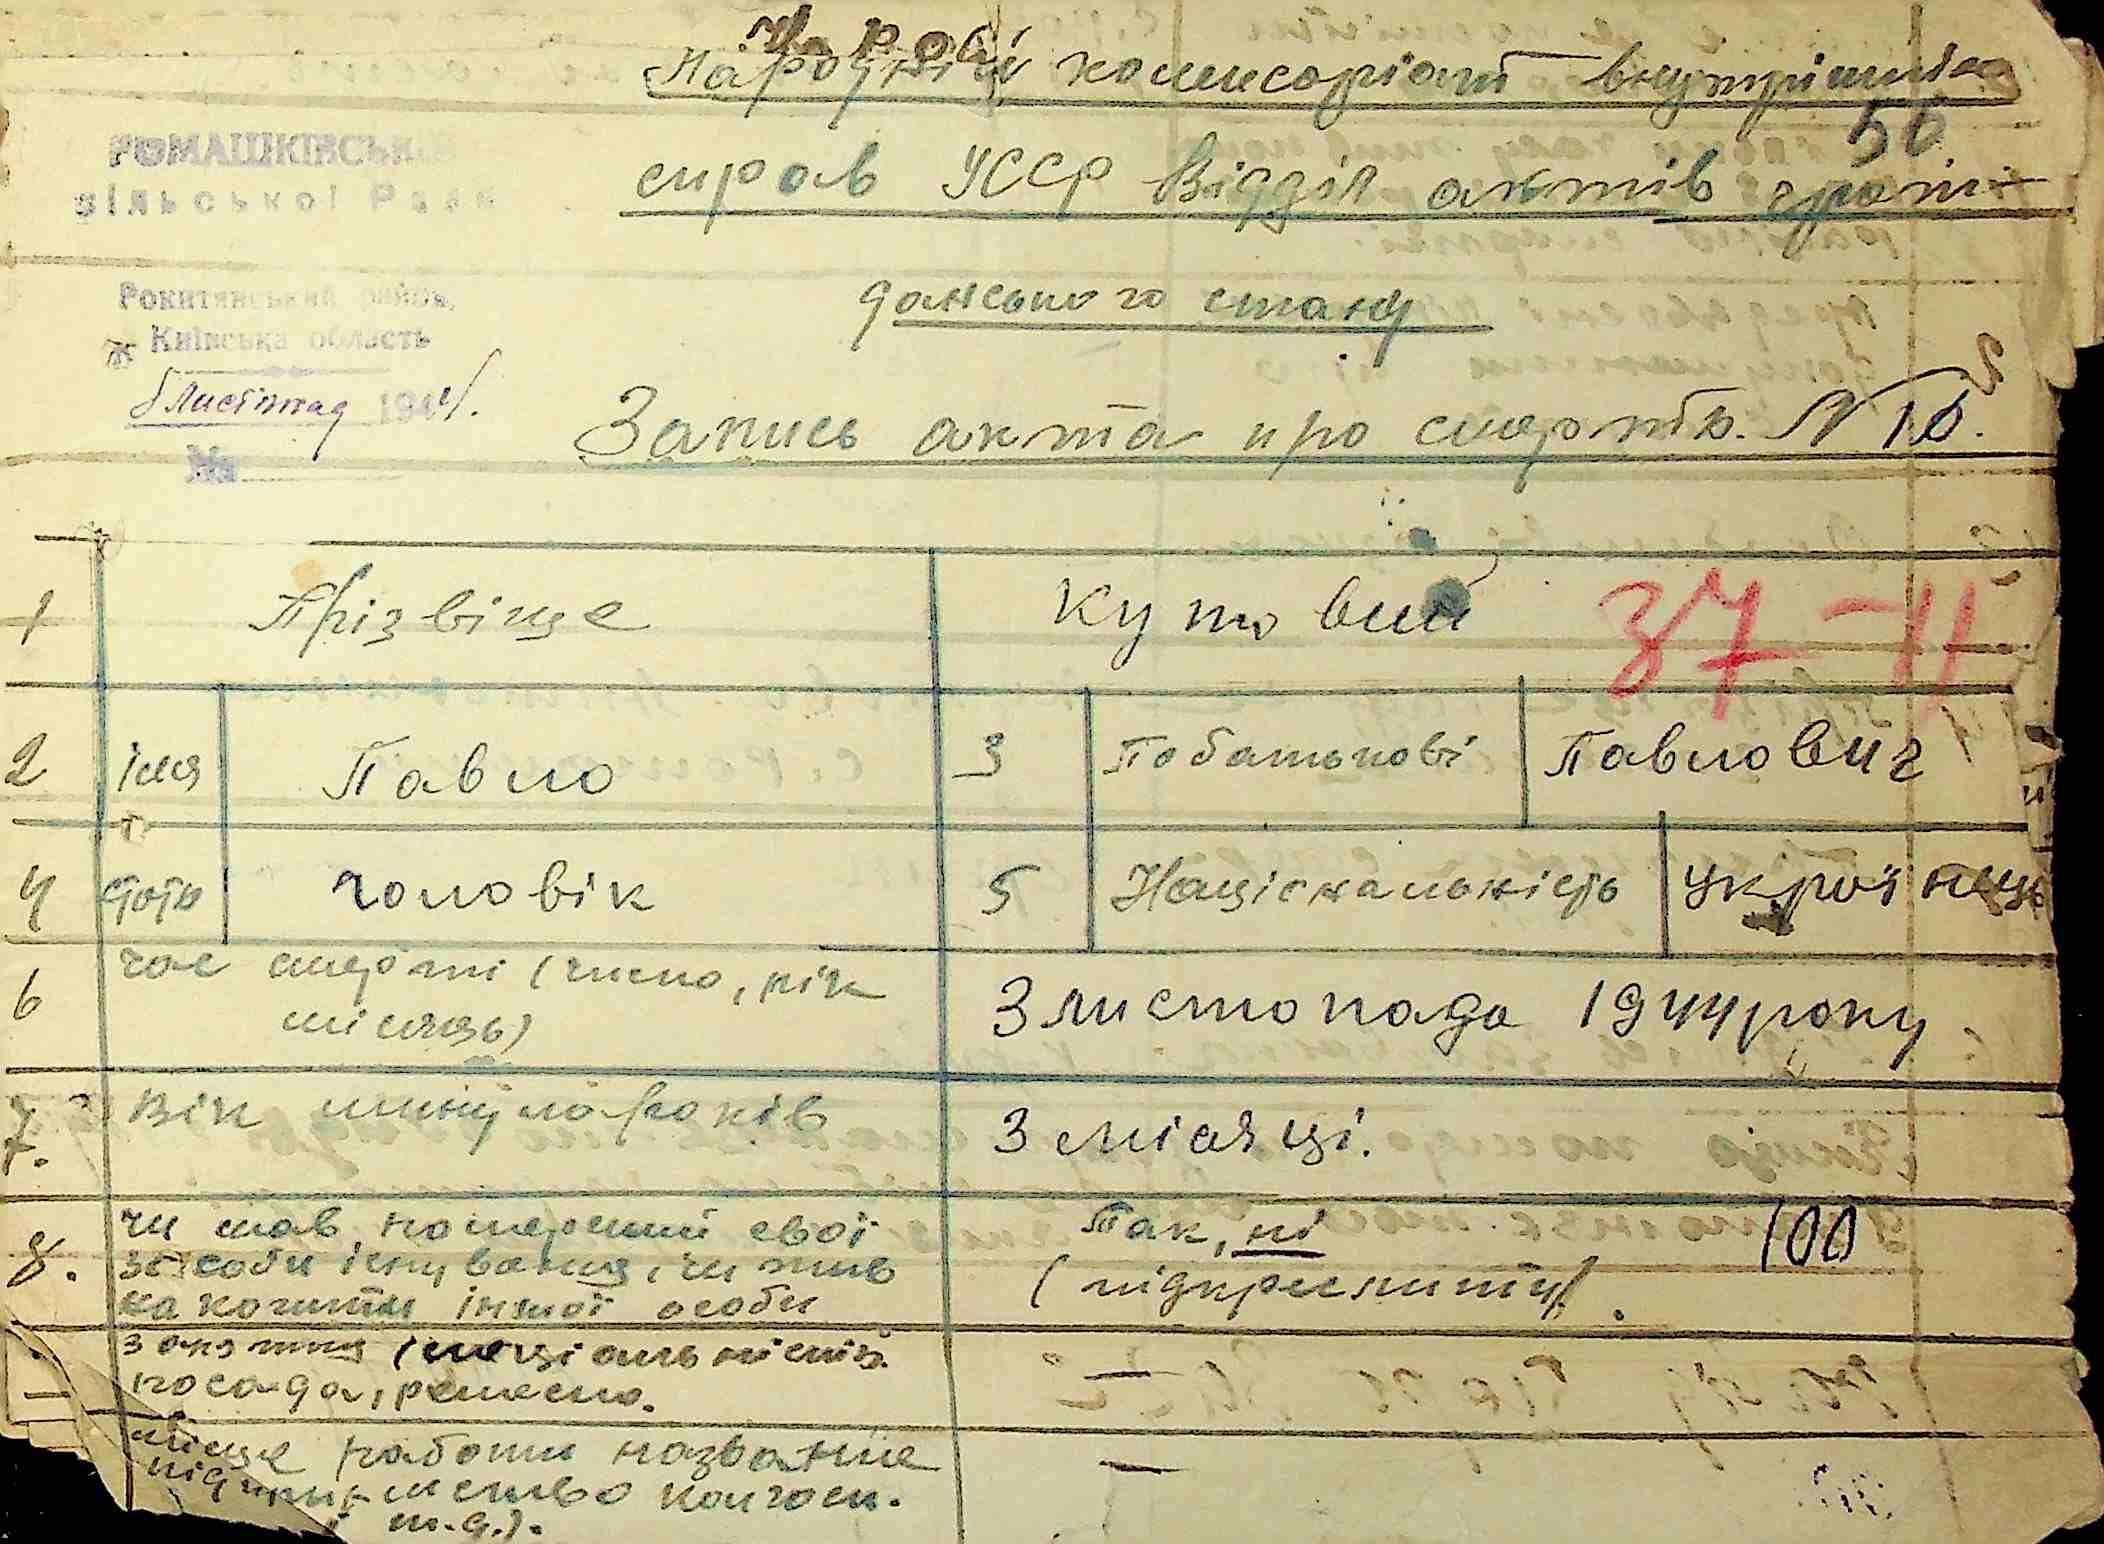 Народній комисаріат внутрішніх
50
справ УССР Відділ актів грома-
дянського стану
РОМАШКІВСЬК
сільської Ради
Рокитянський район,
Київська область
6 Листопад 1944.
№
Запись акта про смерть. N 10.
1 Прізвіще Кутовий 37-11
2 імя Павло 3 Побатькові Павлович
4 стать чоловік 5 Націснальність українець
6 час смерти (число, рік
місяць) 3 листопада 1944 року
7. Вік минуло років 3 місяці.
8. чи мав померший свої
засоби існування, чи жив
на кошти іншої особи
Так, ні
(підкреслити). 100
заняття (спеціальність
посада, ремесло. —
місце работи названіе
підпри- мство колгосп.
т.д.). —